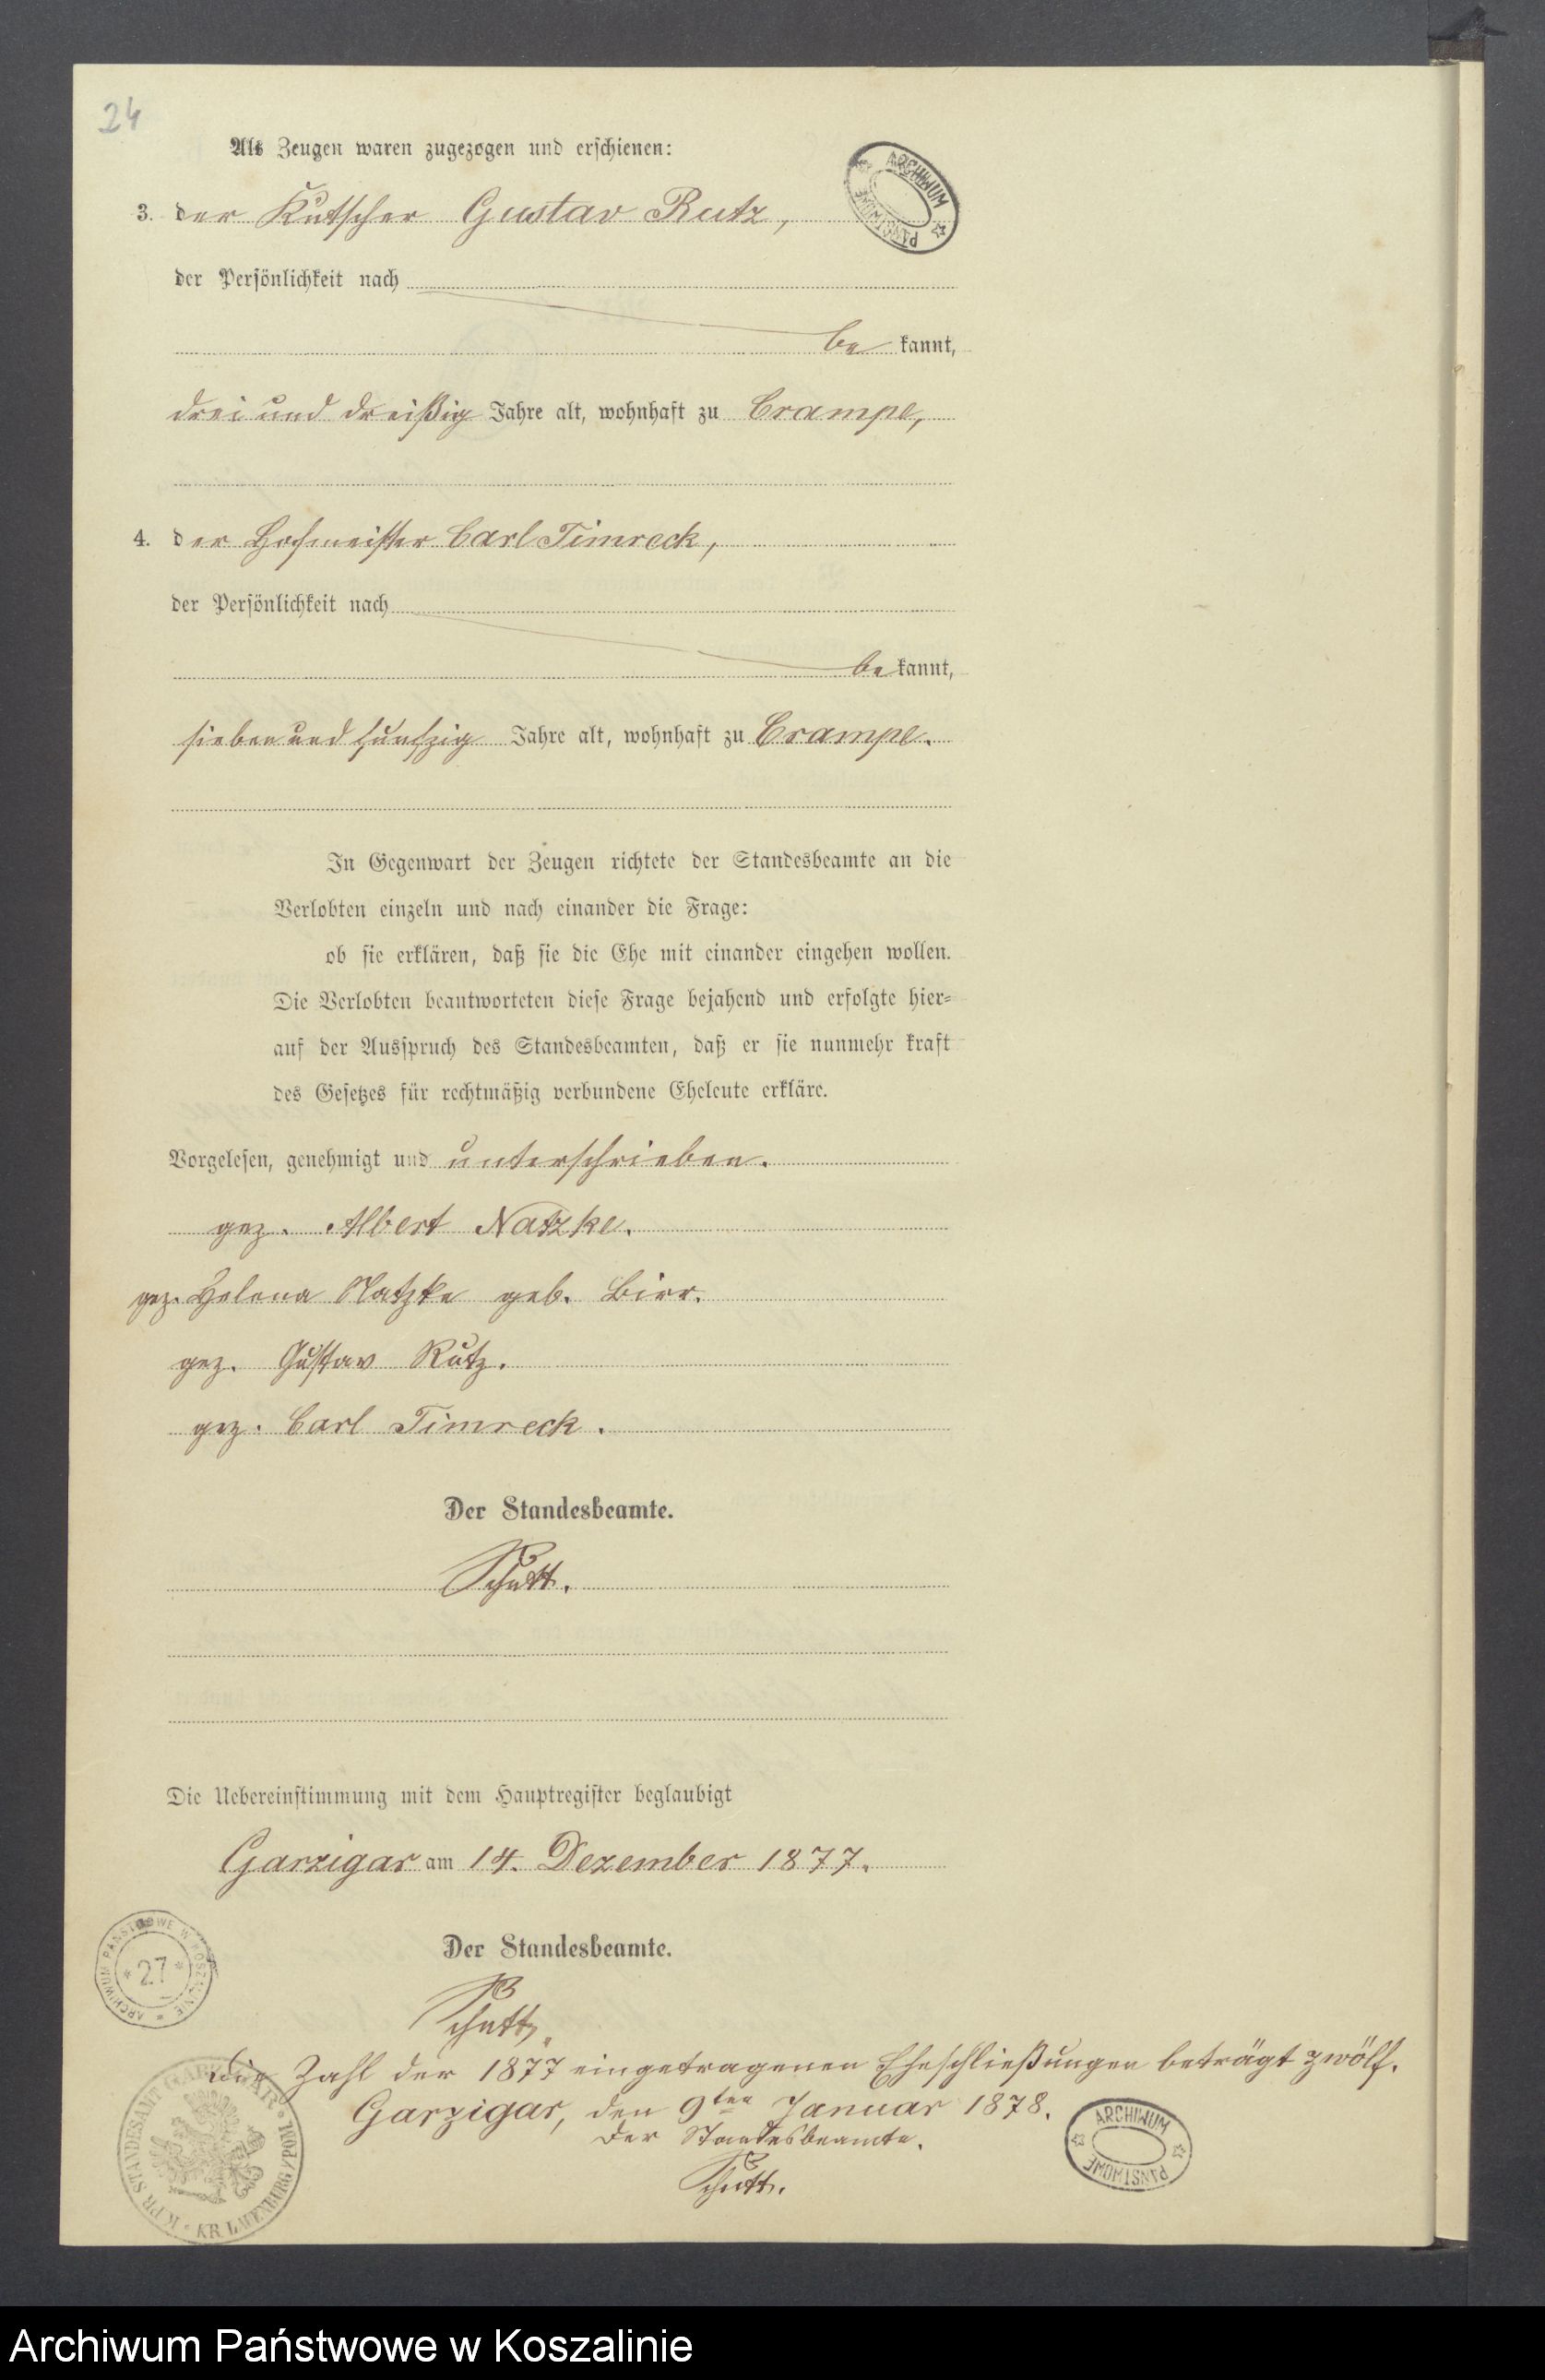 24
Als Zeugen waren zugezogen und erschienen:
3. der Kutscher Gustav Rutz,
der Persönlichkeit nach
be kannt,
drei und dreißig Jahre alt, wohnhaft zu Crampe,
4. der Hofmeister Carl Timreck,
der Persönlichkeit nach
be kannt,
sieben und fünfzig Jahre alt, wohnhaft zu Crampe.
In Gegenwart der Zeugen richtete der Standesbeamte an die
Verlobten einzeln und nach einander die Frage:
ob sie erklären, daß sie die Ehe mit einander eingehen wollen.
Die Verlobten beantworteten diese Frage bejahend und erfolgte hier=
auf der Ausspruch des Standesbeamten, daß er sie nunmehr kraft
des Gesetzes für rechtmäßig verbundene Eheleute erkläre.
Vorgelesen, genehmigt und unterschrieben.
gez. Albert Natzke.
gez. Helena Natzke geb. Birr.
gez. Gustav Rutz.
gez. Carl Timreck.
Der Standesbeamte.
Schütt.
Die Uebereinstimmung mit dem Hauptregister beglaubigt
Garzigar am 14. Dezember 1877.
Der Standesbeamte.
Schütt.
Die Zahl der 1877 eingetragenen Eheschließungen beträgt zwölf.
Garzigar, den 9ten Januar 1878.
Der Standesbeamte.
Schütt.
ARCHIWUM PAŃSTWOWE
ARCHIWUM PAŃSTWOWE W KOSZALINIE * 27 *
K. PR. STANDESAMT GARZIGAR * KR. LAUENBURG /POM.
ARCHIWUM PAŃSTWOWE
Archiwum Państwowe w Koszalinie